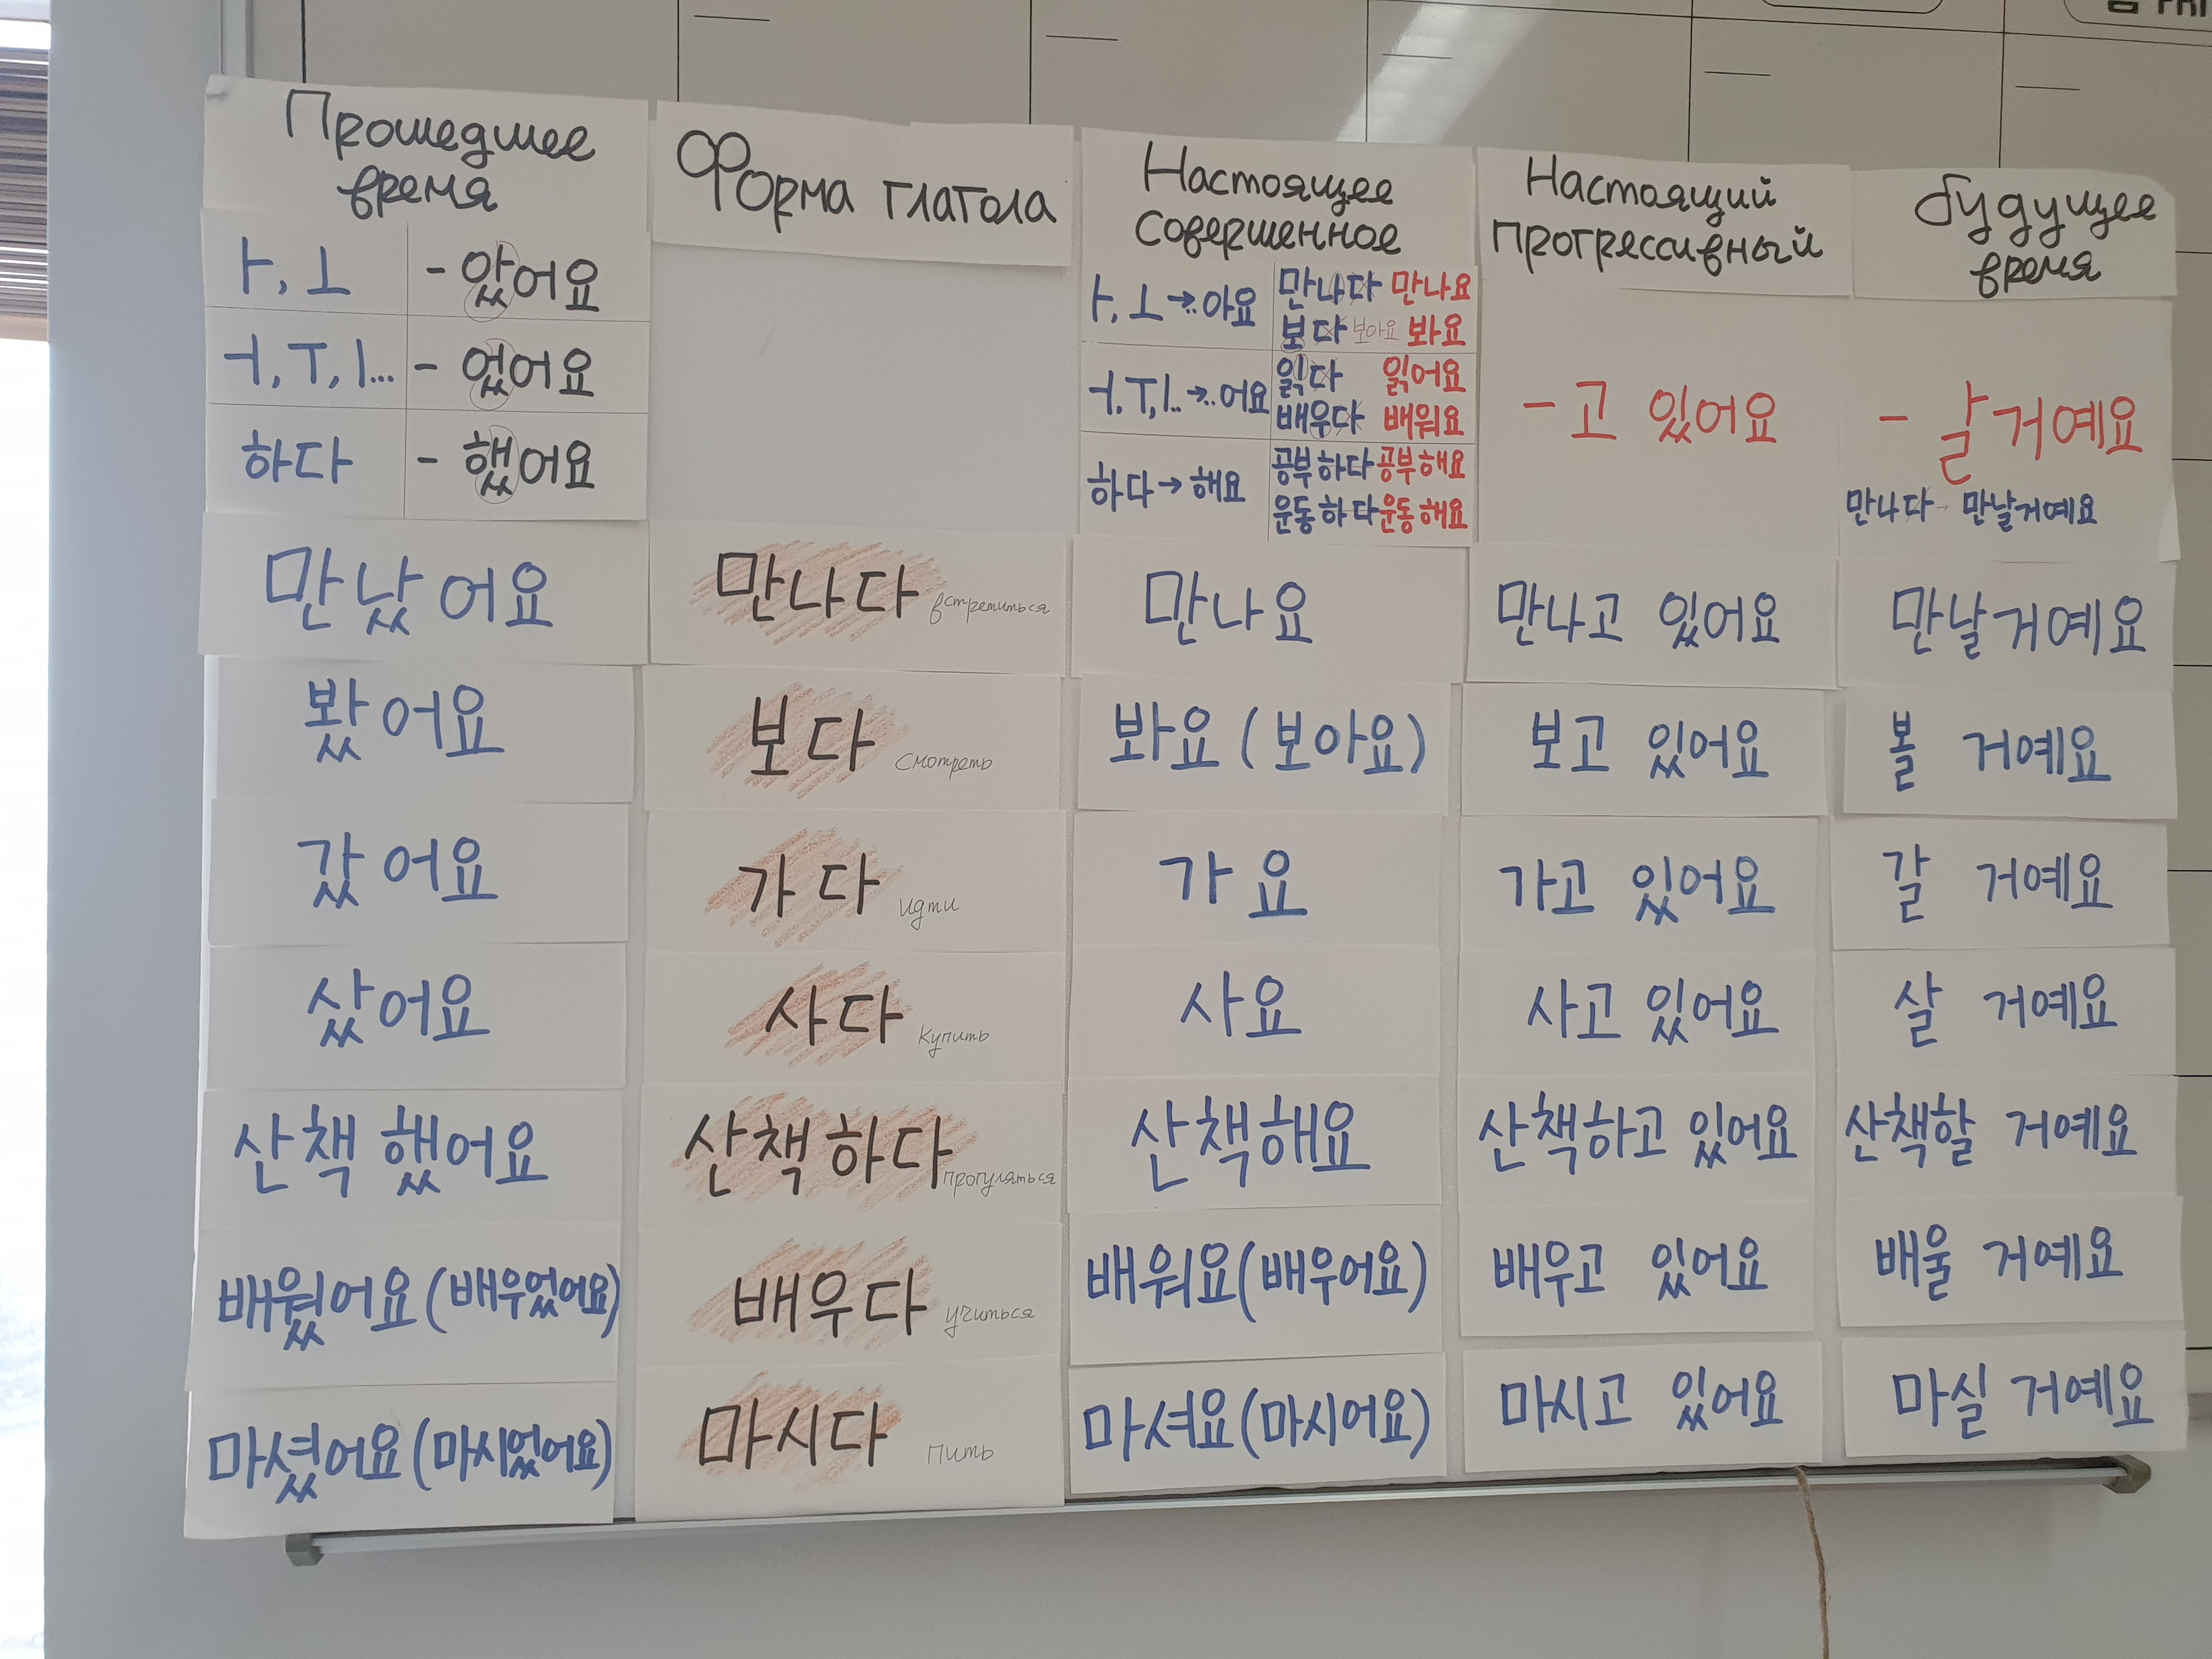 FRI
Прошедшее
время
Форма глагола
Настоящее
совершенное
Настоящий
прогрессивный
будущее
время
ㅏ, ㅗ - 았어요
ㅓ, ㅜ, ㅣ... - 었어요
하다 - 했어요
ㅏ, ㅗ → .. 아요 만나다 만나요
보다 보아요 봐요
ㅓ, ㅜ, ㅣ.. → .. 어요 읽다 읽어요
배우다 배워요
하다 → 해요 공부하다 공부해요
운동하다 운동해요
- 고 있어요
- ㄹ 거예요
만나다 → 만날거예요
만났어요 만나다 встретиться 만나요 만나고 있어요 만날거예요
봤어요 보다 смотреть 봐요 (보아요) 보고 있어요 볼 거예요
갔어요 가다 идти 가요 가고 있어요 갈 거예요
샀어요 사다 купить 사요 사고 있어요 살 거예요
산책 했어요 산책 하다 прогуляться 산책해요 산책하고 있어요 산책할 거예요
배웠어요 (배우었어요) 배우다 учиться 배워요 (배우어요) 배우고 있어요 배울 거예요
마셨어요 (마시었어요) 마시다 пить 마셔요 (마시어요) 마시고 있어요 마실 거예요